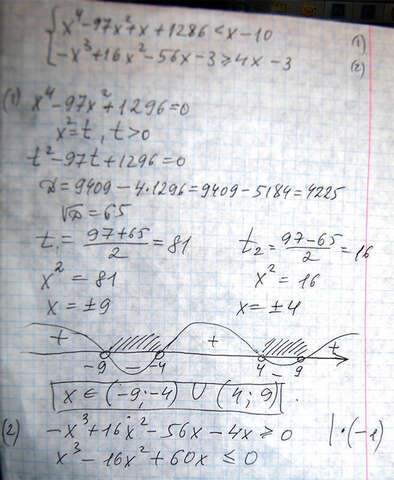 { x⁴-97x²+x+1286<x-10 (1)
-x³+16x²-56x-3≥4x-3 (2)
(1) x⁴-97x²+1296=0
x²=t, t>0
t²-97t+1296=0
D=9409-4·1296=9409-5184=4225
√D=65
t₁=(97+65)/2=81 t₂=(97-65)/2=16
x²=81 x²=16
x=±9 x=±4
+ - + - +
-9 -4 4 9
x∈(-9;-4)∪(4;9).
(2) -x³+16x²-56x-4x≥0 |·(-1)
x³-16x²+60x≤0